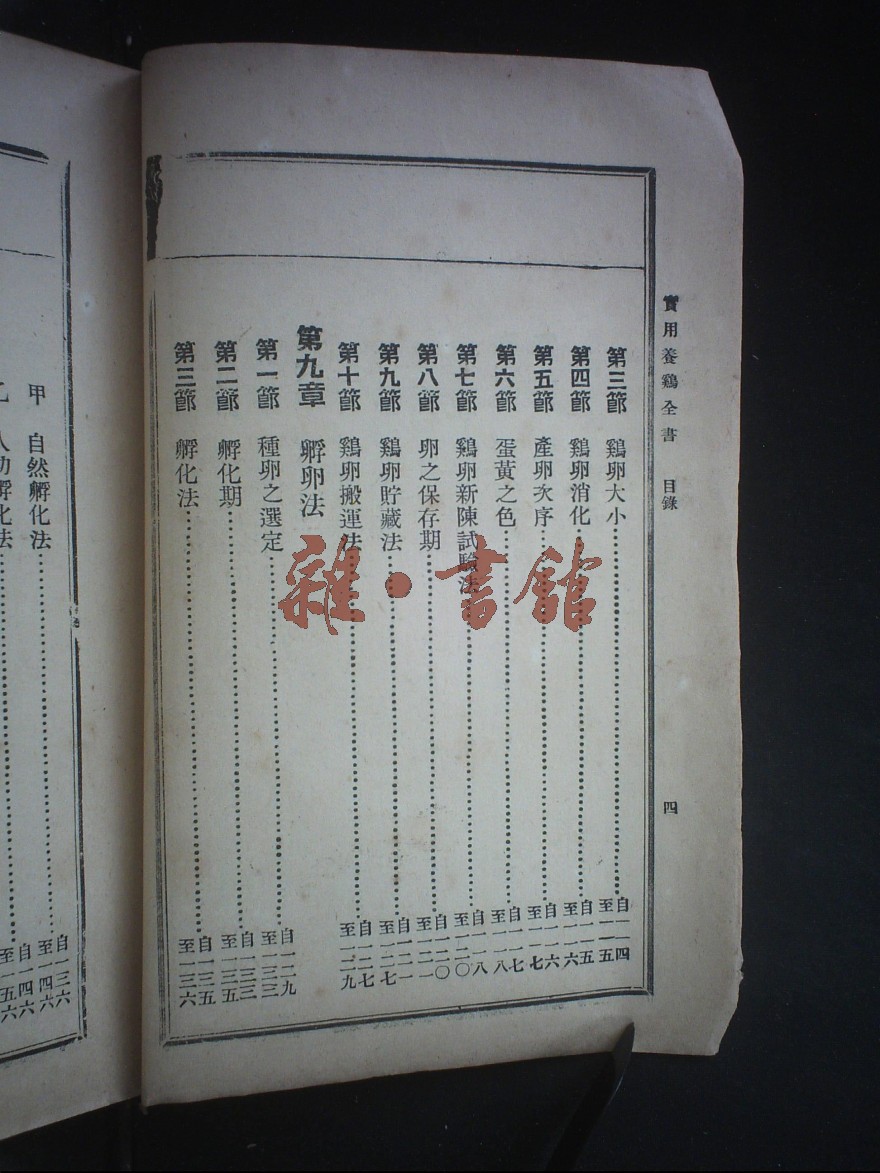 實用養鷄全書 目錄 四
第三節 鷄卵大小……自一一四至一一五
第四節 鷄卵消化……自一一五至一一六
第五節 產卵次序……自一一六至一一七
第六節 蛋黃之色……自一一七至一一八
第七節 鷄卵新陳試驗法……自一一八至一二〇
第八節 卵之保存期……自一二〇至一二一
第九節 鷄卵貯藏法……自一二一至一二七
第十節 鷄卵搬運法……自一二七至一二九
第九章 孵卵法
第一節 種卵之選定……自一二九至一三三
第二節 孵化期……自一三三至一三五
第三節 孵化法……自一三五至一三六
甲 自然孵化法……自一三六至一四六
孵化法……自一四六至一五六
雜·書館